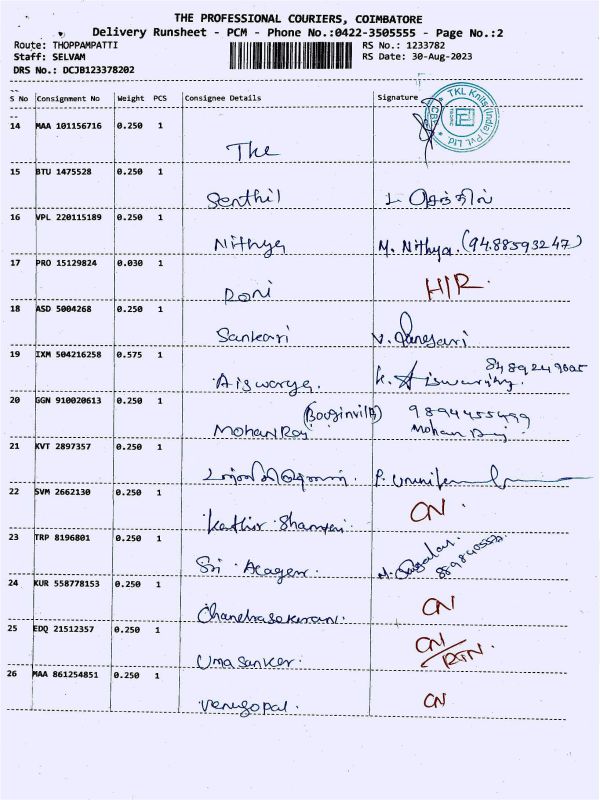 THE PROFESSIONAL COURIERS, COIMBATORE
Delivery Runsheet - PCM - Phone No.:0422-3505555 - Page No.:2
Route: THOPPAMPATTI RS No.: 1233782
Staff: SELVAM RS Date: 30-Aug-2023
DRS No.: DCJB123378202
S No Consignment No Weight PCS Consignee Details Signature
TKL Knits (India) Pvt. Ltd. CBE
14 MAA 101156716 0.250 1
The
15 BTU 1475528 0.250 1
Senthil செந்தில்
16 VPL 220115189 0.250 1
Nithya M. Nithya. (9488593247)
17 PRO 15129824 0.030 1
Roni H/R.
18 ASD 5004268 0.250 1
Sankari V.
19 IXM 504216258 0.575 1
Aiswarya. K. Aiswarya.
20 GGN 910020613 0.250 1
(Bouginvilla) 9894455499
Mohan Raj Mohan Raj
21 KVT 2897357 0.250 1
P.
22 SVM 2662130 0.250 1
Kathir CN.
23 TRP 8196801 0.250 1
Sri
24 KUR 558778153 0.250 1
Chandrasekaran. CN
25 EDQ 21512357 0.250 1
Uma Sanker. CN/RTN.
26 MAA 861254851 0.250 1
Venugopal. CN